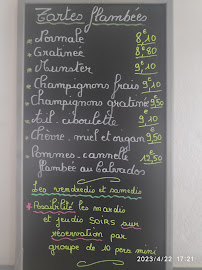 Tartes flambées
Normale 8,€10
Gratinée 8,€80
Munster 9,€10
Champignons frais 9,€10
Champignons gratinée 9,€50
Ail-ciboulette 9,€10
Chèvre-miel et origan 9,€50
Pommes-cannelle 12,€50
flambée au Calvados
Les vendredis et samedis
* Possibilité les mardis
et jeudis SOIRS sur
réservation par
groupe de 10 pers mini
2023/4/22 17:21